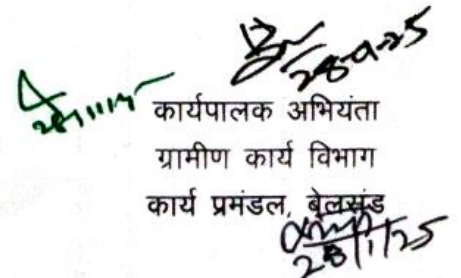 28-1-25
कार्यपालक अभियंता
ग्रामीण कार्य विभाग
कार्य प्रमंडल, बेलसंड
28/1/25